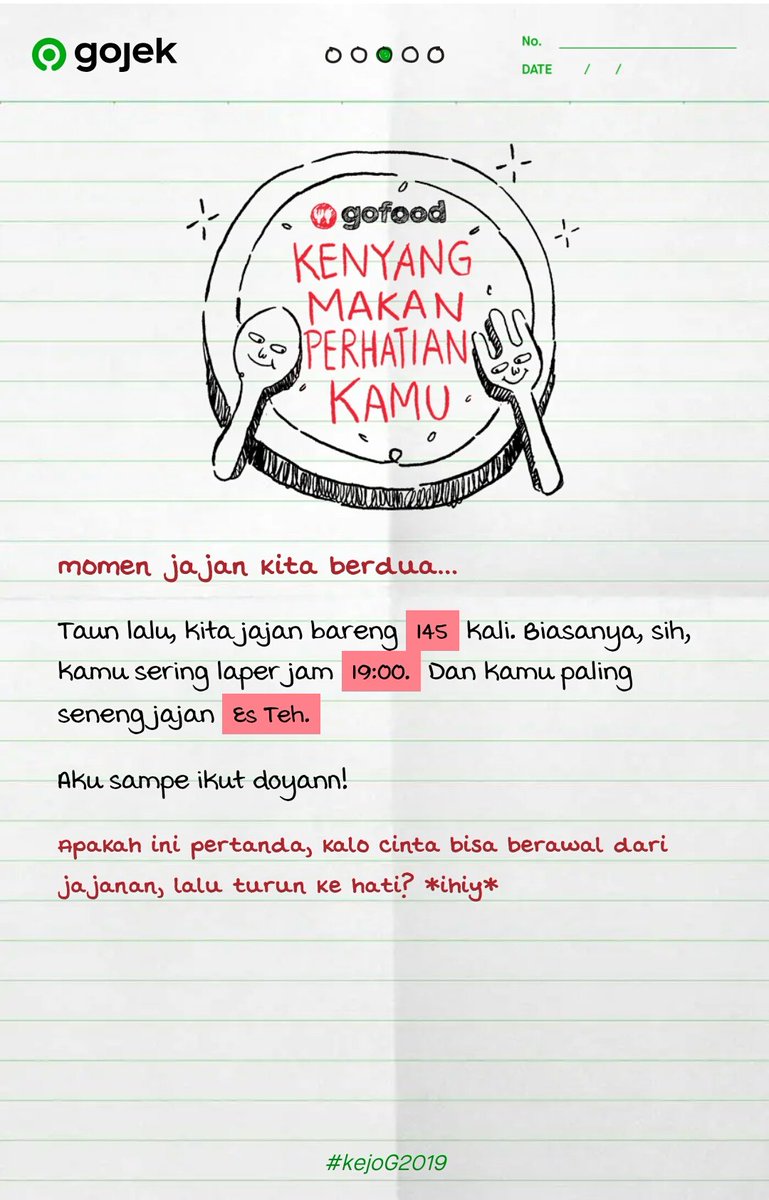 gojek
No.
DATE / /
gofood
KENYANG
MAKAN
PERHATIAN
KAMU
momen jajan kita berdua...
Taun lalu, kita jajan bareng 145 kali. Biasanya, sih,
kamu sering laper jam 19:00. Dan kamu paling
seneng jajan Es Teh.
Aku sampe ikut doyann!
Apakah ini pertanda, kalo cinta bisa berawal dari
jajanan, lalu turun ke hati? *ihiy*
#kejoG2019